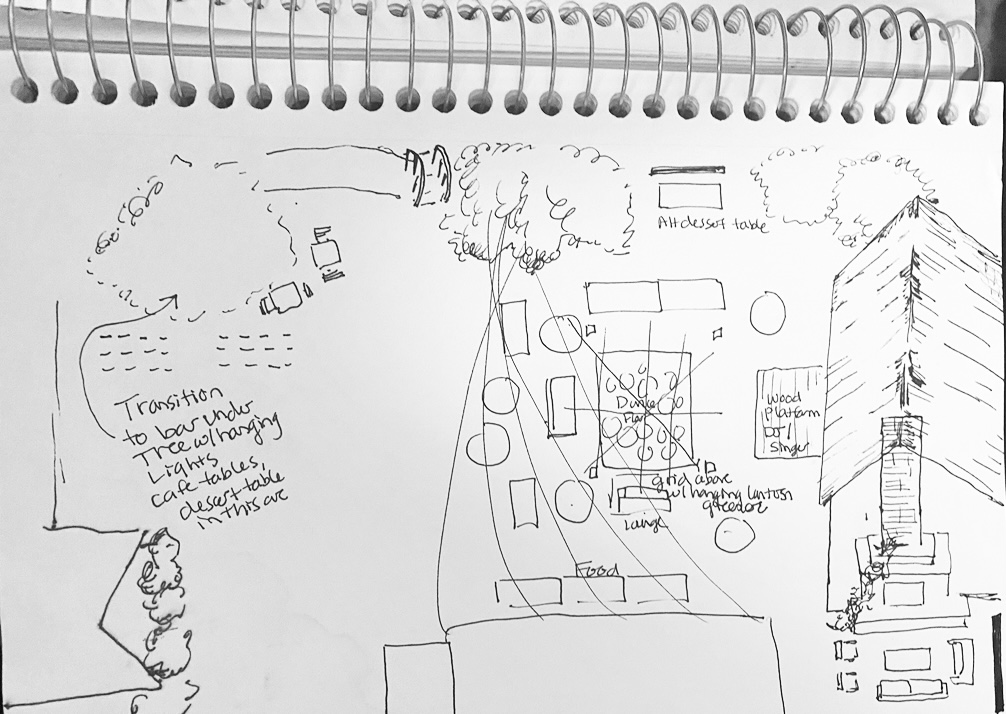 Alt desset table
Dance
Floor
Wood
Platform
DJ /
Singer
Transition
to bar under
Tree w/hanging
Lights
cafe tables,
dessert table
in this are
grid above
w/ hanging
lounge
Food